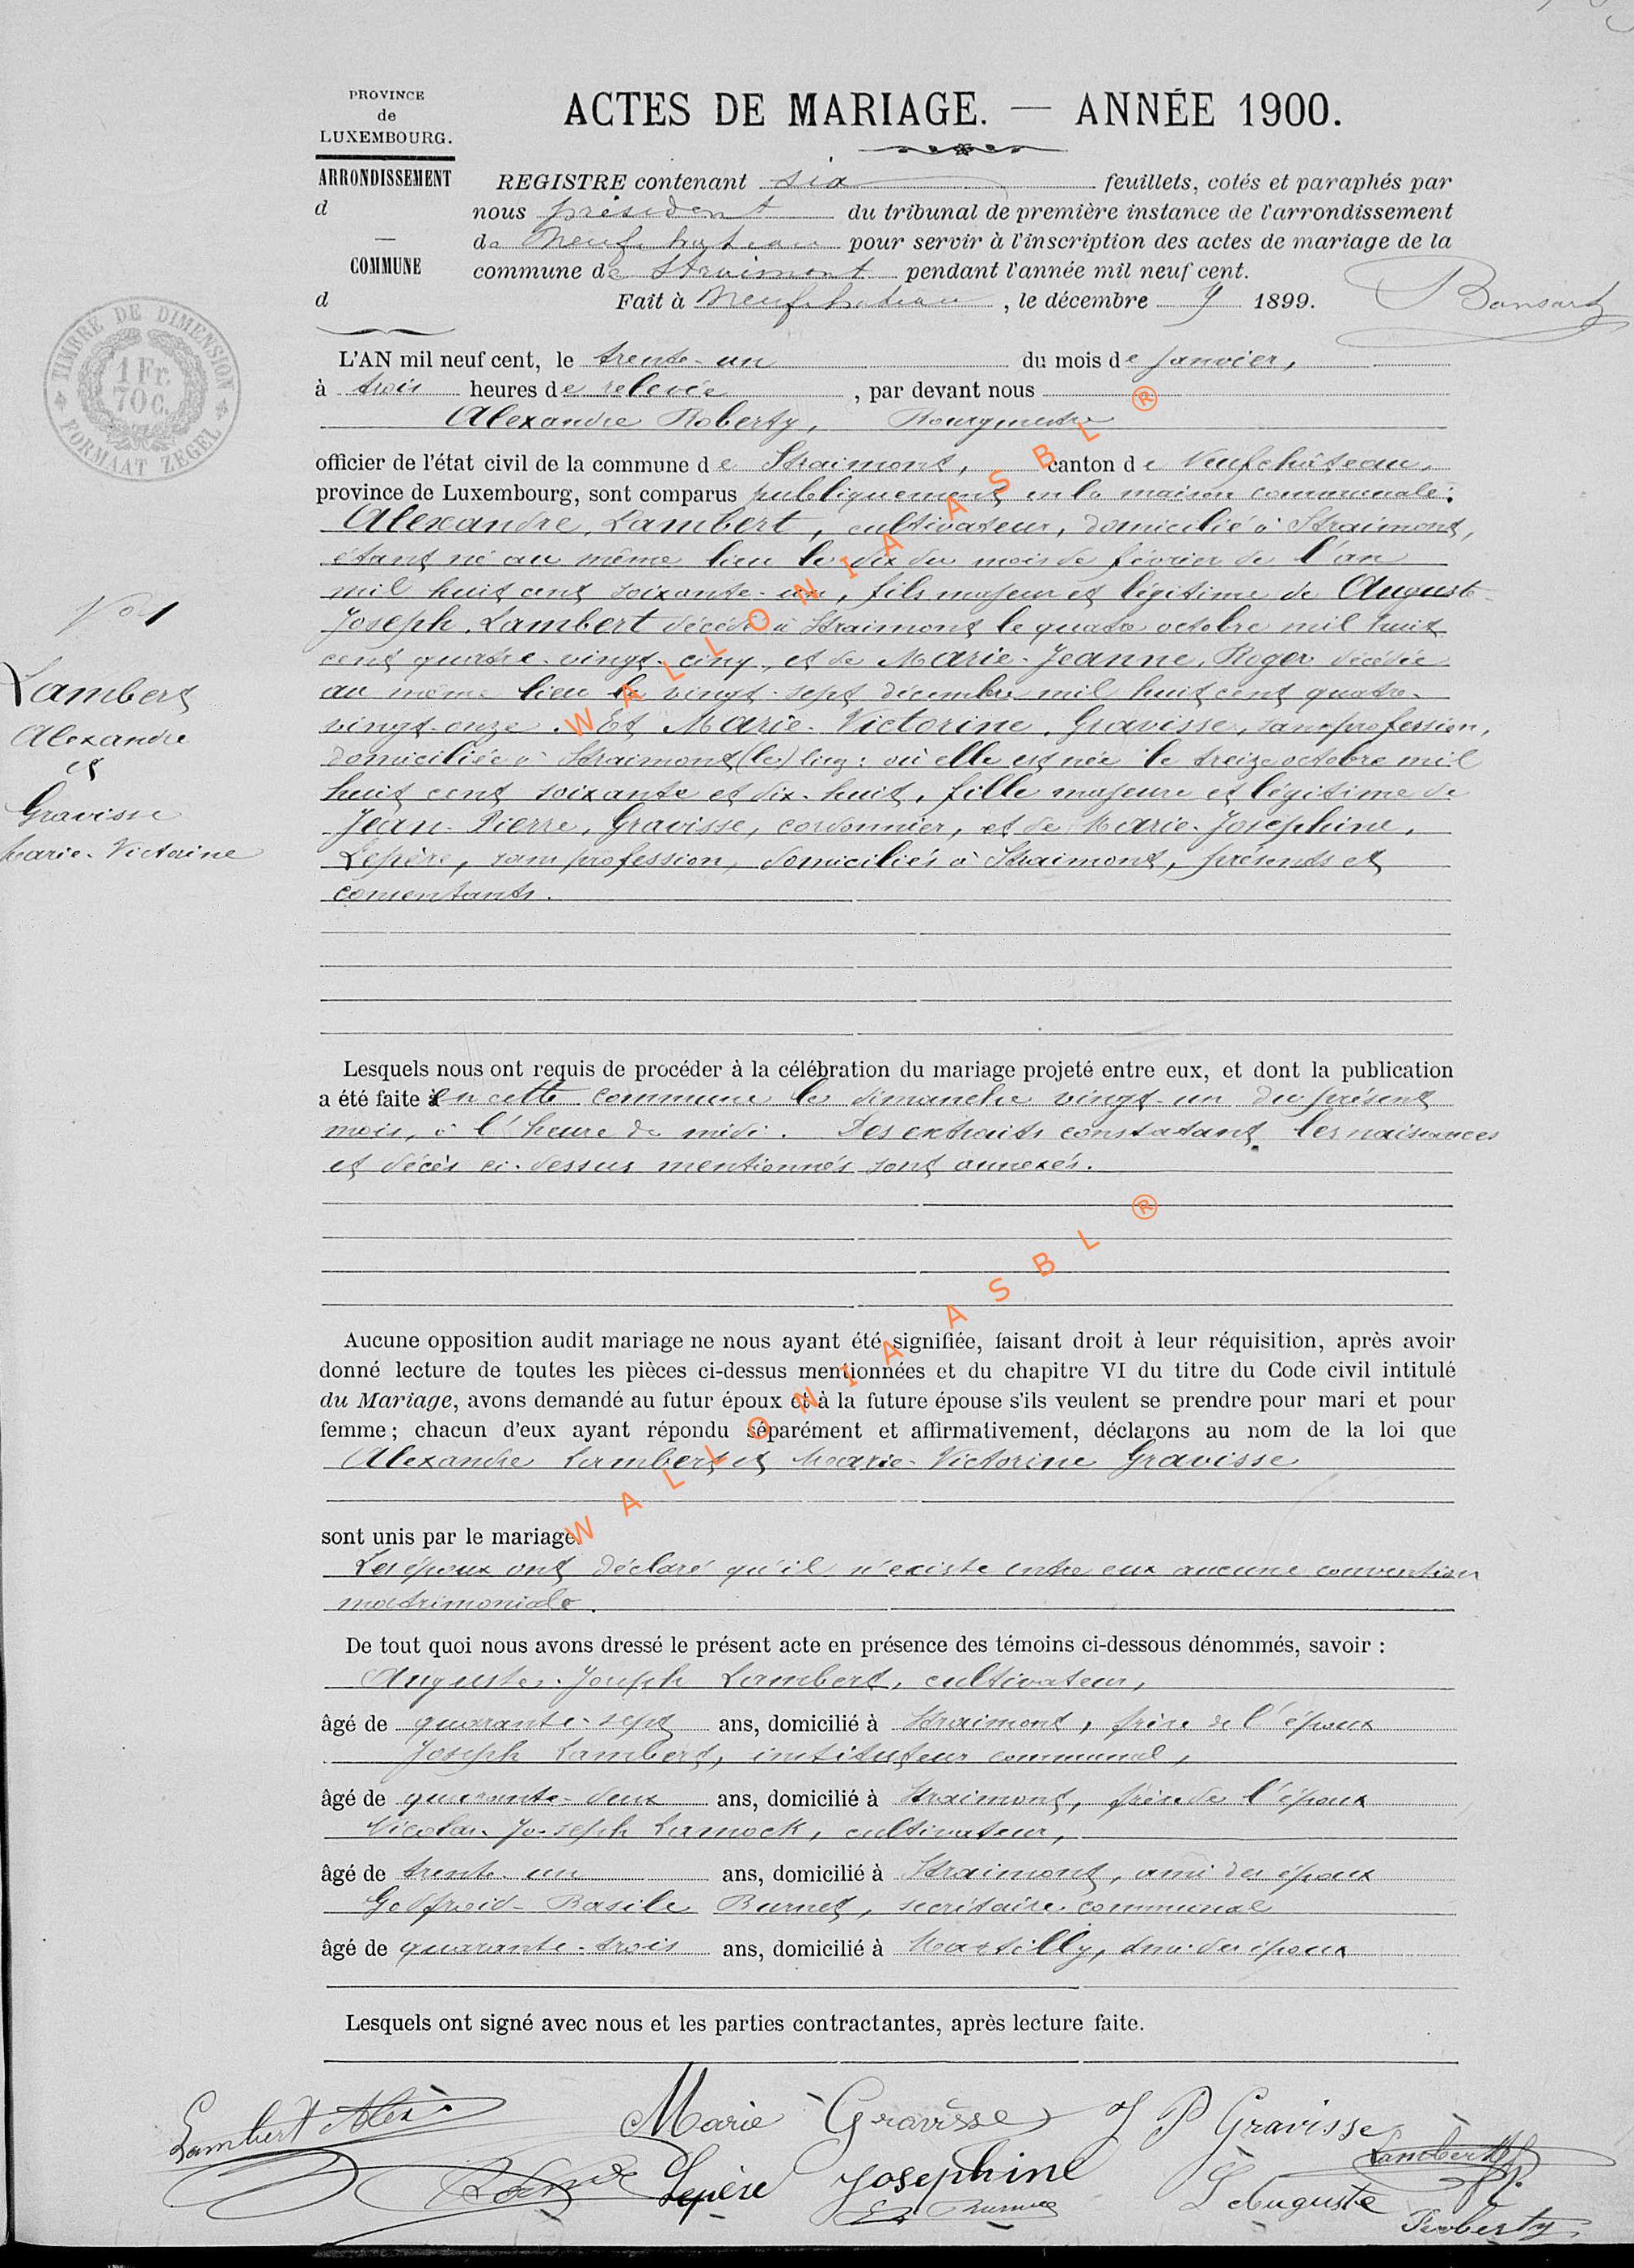 PROVINCE
de
LUXEMBOURG.
ARRONDISSEMENT
d
COMMUNE
d
ACTES DE MARIAGE. — ANNÉE 1900.
REGISTRE contenant six feuillets, cotés et paraphés par
nous président du tribunal de première instance de l'arrondissement
de Neufchateau pour servir à l'inscription des actes de mariage de la
commune de Straimont pendant l'année mil neuf cent.
Fait à Neufchateau, le décembre 9 1899.
TIMBRE DE DIMENSION
1 Fr.
70 C.
FORMAAT ZEGEL
L'AN mil neuf cent, le trente-un du mois de janvier,
à trois heures de relevée, par devant nous
Alexandre Roberty, Bourgmestre
officier de l'état civil de la commune de Straimont, canton de Neufchâteau,
province de Luxembourg, sont comparus publiquement en la maison communale:
Alexandre, Lambert, cultivateur, domicilié à Straimont,
étant né au même lieu le dix du mois de février de l'an
mil huit cent soixante-un, fils majeur et légitime de Auguste
Joseph, Lambert décédé à Straimont le quatre octobre mil huit
cent quatre-vingt-cinq, et de Marie-Jeanne, Roger décédée
au même lieu le vingt-sept décembre mil huit cent quatre-
vingt-onze. Et Marie-Victorine, Gravisse, sans profession,
domiciliée à Straimont (le) lieu: où elle est née le treize octobre mil
huit cent soixante et dix-huit, fille majeure et légitime de
Jean-Pierre, Gravisse, cordonnier, et de Marie-Josephine,
Lepère, sans profession, domiciliés à Straimont, présents et
consentants.
No 1
Lambert
Alexandre
et
Gravisse
Marie-Victorine
Lesquels nous ont requis de procéder à la célébration du mariage projeté entre eux, et dont la publication
a été faite en cette commune le dimanche vingt-un du présent
mois, à l'heure de midi. Les extraits constatant les naissances
et décès ci-dessus mentionnés sont annexés.
Aucune opposition audit mariage ne nous ayant été signifiée, faisant droit à leur réquisition, après avoir
donné lecture de toutes les pièces ci-dessus mentionnées et du chapitre VI du titre du Code civil intitulé
du Mariage, avons demandé au futur époux et à la future épouse s'ils veulent se prendre pour mari et pour
femme; chacun d'eux ayant répondu séparément et affirmativement, déclarons au nom de la loi que
Alexandre Lambert et Marie-Victorine Gravisse
sont unis par le mariage.
Les époux ont déclaré qu'il n'existe entre eux aucune convention
matrimoniale.
De tout quoi nous avons dressé le présent acte en présence des témoins ci-dessous dénommés, savoir :
Auguste-Joseph Lambert, cultivateur,
âgé de quarante-sept ans, domicilié à Straimont, frère de l'époux
Joseph Lambert, instituteur communal,
âgé de quarante-deux ans, domicilié à Straimont, frère de l'époux
Nicolas-Joseph Lamock, cultivateur,
âgé de trente-un ans, domicilié à Straimont, ami des époux
Godfroid-Basile Burnet, secrétaire communal
âgé de quarante-trois ans, domicilié à Martilly, ami des époux
Lesquels ont signé avec nous et les parties contractantes, après lecture faite.
Lambert Alex
Marie Gravisse
J P Gravisse
Lambert
Lepère Josephine
L Auguste
Roberty
WALLONIA ASBL ®
WALLONIA ASBL ®